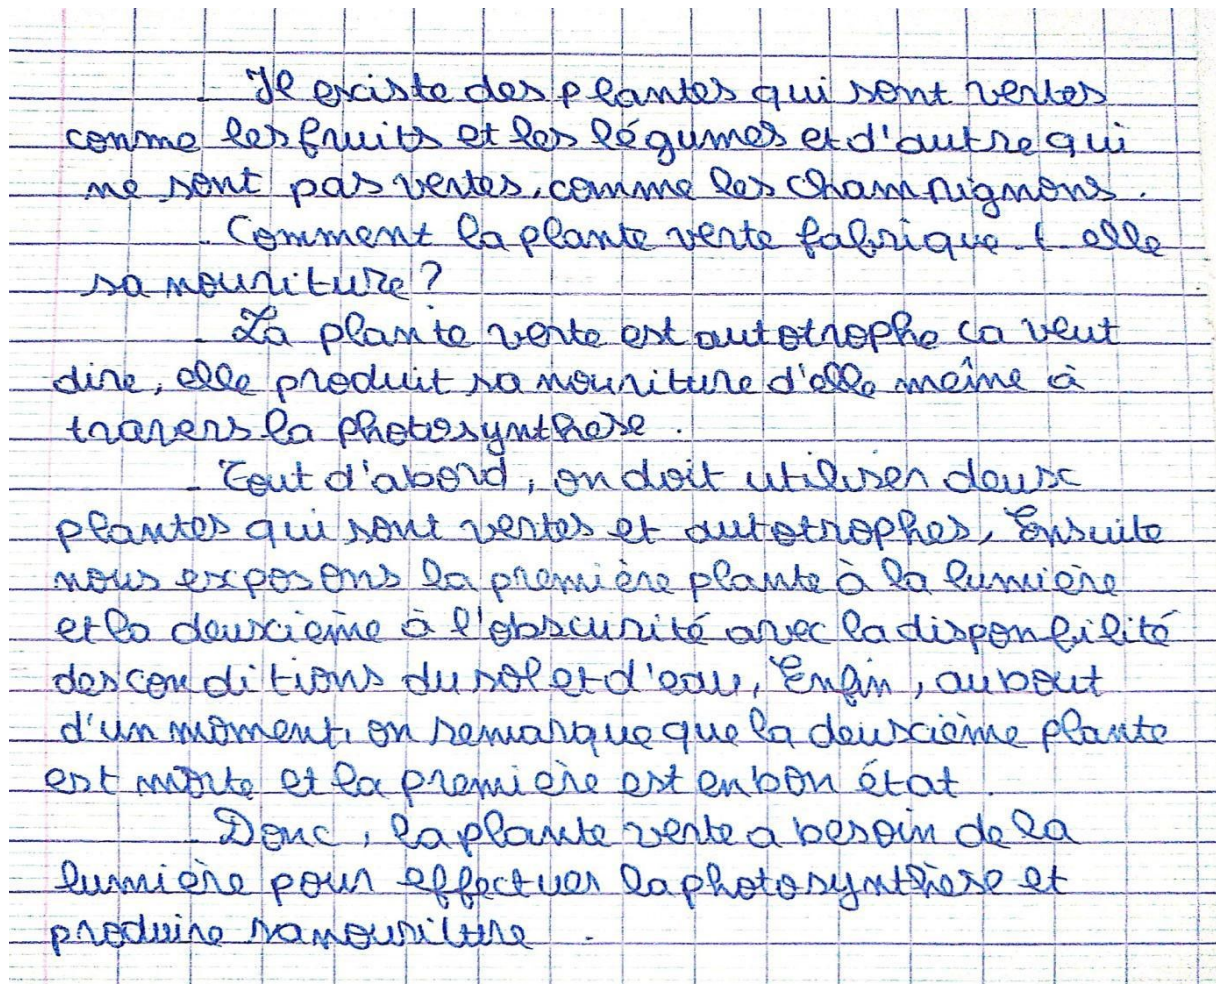 Il existe des plantes qui sont vertes
comme les fruits et les légumes et d'autre qui
ne sont pas vertes, comme les champignons.
Comment la plante verte fabrique t elle
sa nouriture?
La plante verte est autotrophe ça veut
dire, elle produit sa nouriture d'elle meîme à
travers la photosynthèse.
Tout d'abord, on doit utiliser deux
plantes qui sont vertes et autotrophes, Ensuite
nous exposons la première plante à la lumière
et la deuxcième à l'obscurité avec la disponbilité
des conditions du sol et d'eau, Enfin, au bout
d'un moment, on remarque que la deuxcième plante
est morte et la première est en bon état.
Donc, la plante verte a besoin de la
lumière pour effectuer la photosynthèse et
produire sa nouriture.